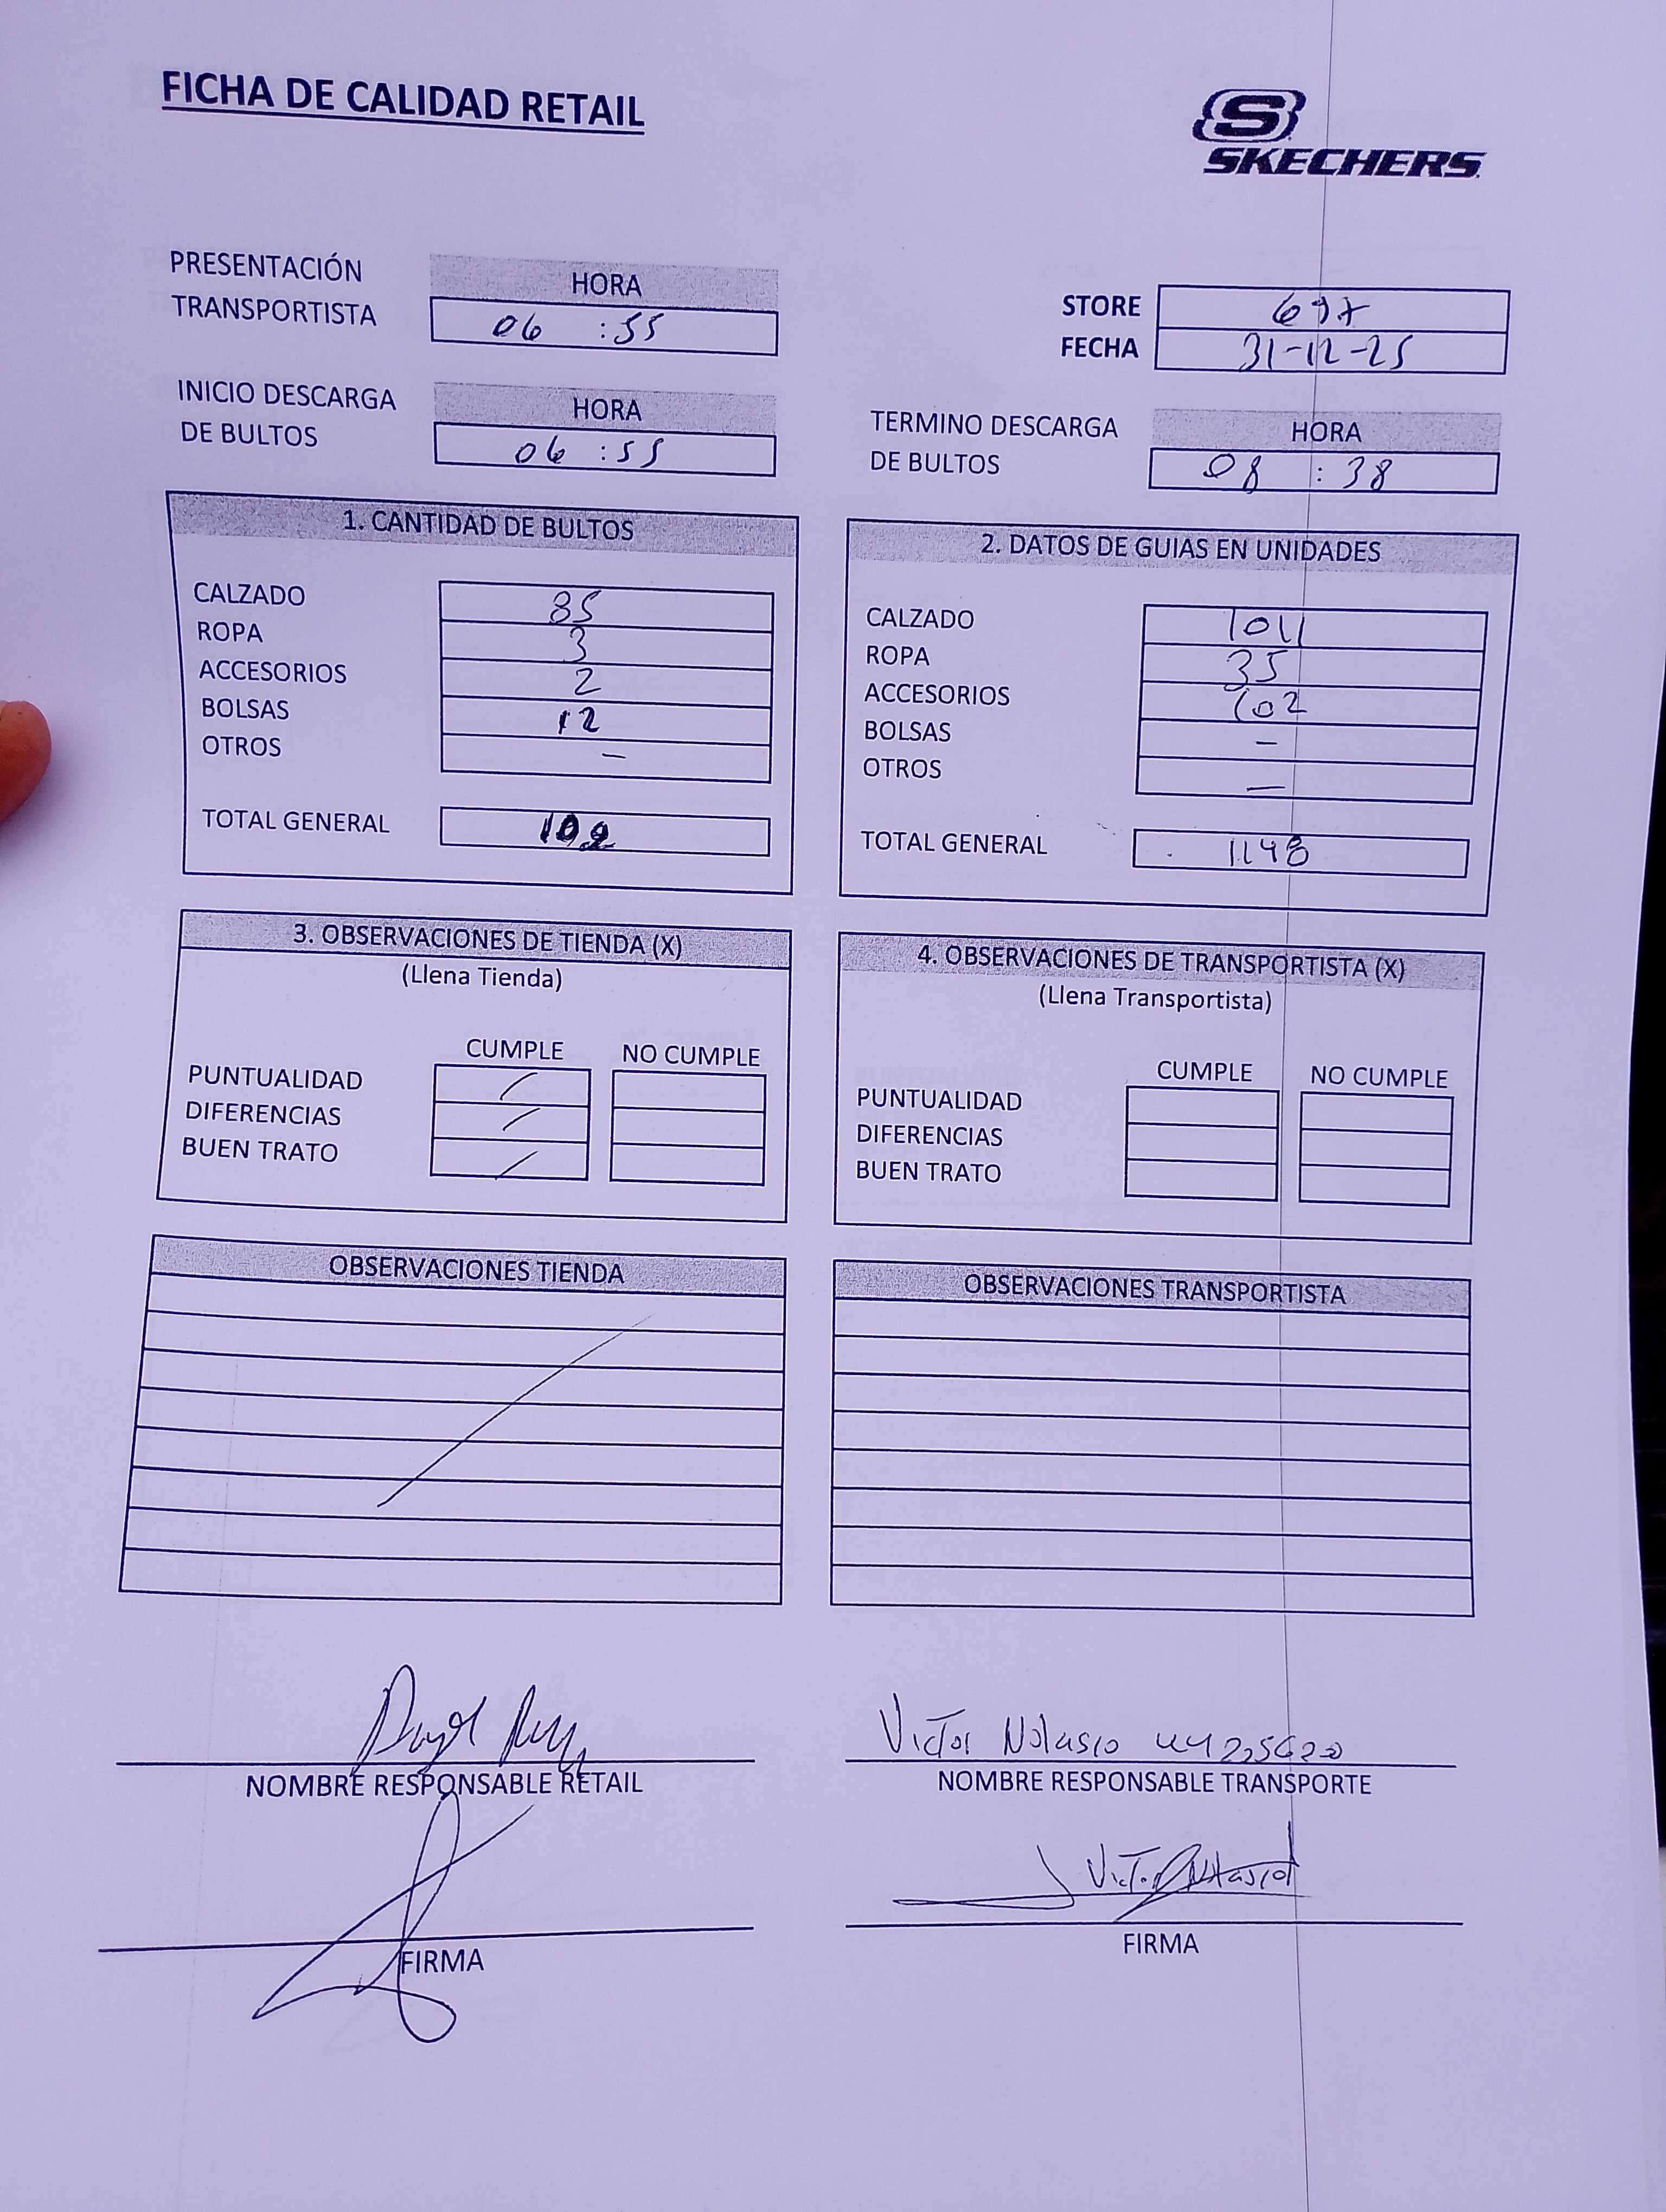 FICHA DE CALIDAD RETAIL
SKECHERS
PRESENTACIÓN TRANSPORTISTA
HORA
06 :55
STORE 697
FECHA 31-12-25
INICIO DESCARGA DE BULTOS
HORA
06 :55
TERMINO DESCARGA DE BULTOS
HORA
08 : 38
1. CANTIDAD DE BULTOS
CALZADO 85
ROPA 3
ACCESORIOS 2
BOLSAS 12
OTROS —
TOTAL GENERAL 102
2. DATOS DE GUIAS EN UNIDADES
CALZADO 1011
ROPA 35
ACCESORIOS 102
BOLSAS —
OTROS —
TOTAL GENERAL 1148
3. OBSERVACIONES DE TIENDA (X)
(Llena Tienda)
CUMPLE NO CUMPLE
PUNTUALIDAD /
DIFERENCIAS /
BUEN TRATO /
4. OBSERVACIONES DE TRANSPORTISTA (X)
(Llena Transportista)
CUMPLE NO CUMPLE
PUNTUALIDAD
DIFERENCIAS
BUEN TRATO
OBSERVACIONES TIENDA
OBSERVACIONES TRANSPORTISTA
NOMBRE RESPONSABLE RETAIL
Victor Nolasco
NOMBRE RESPONSABLE TRANSPORTE
FIRMA
FIRMA